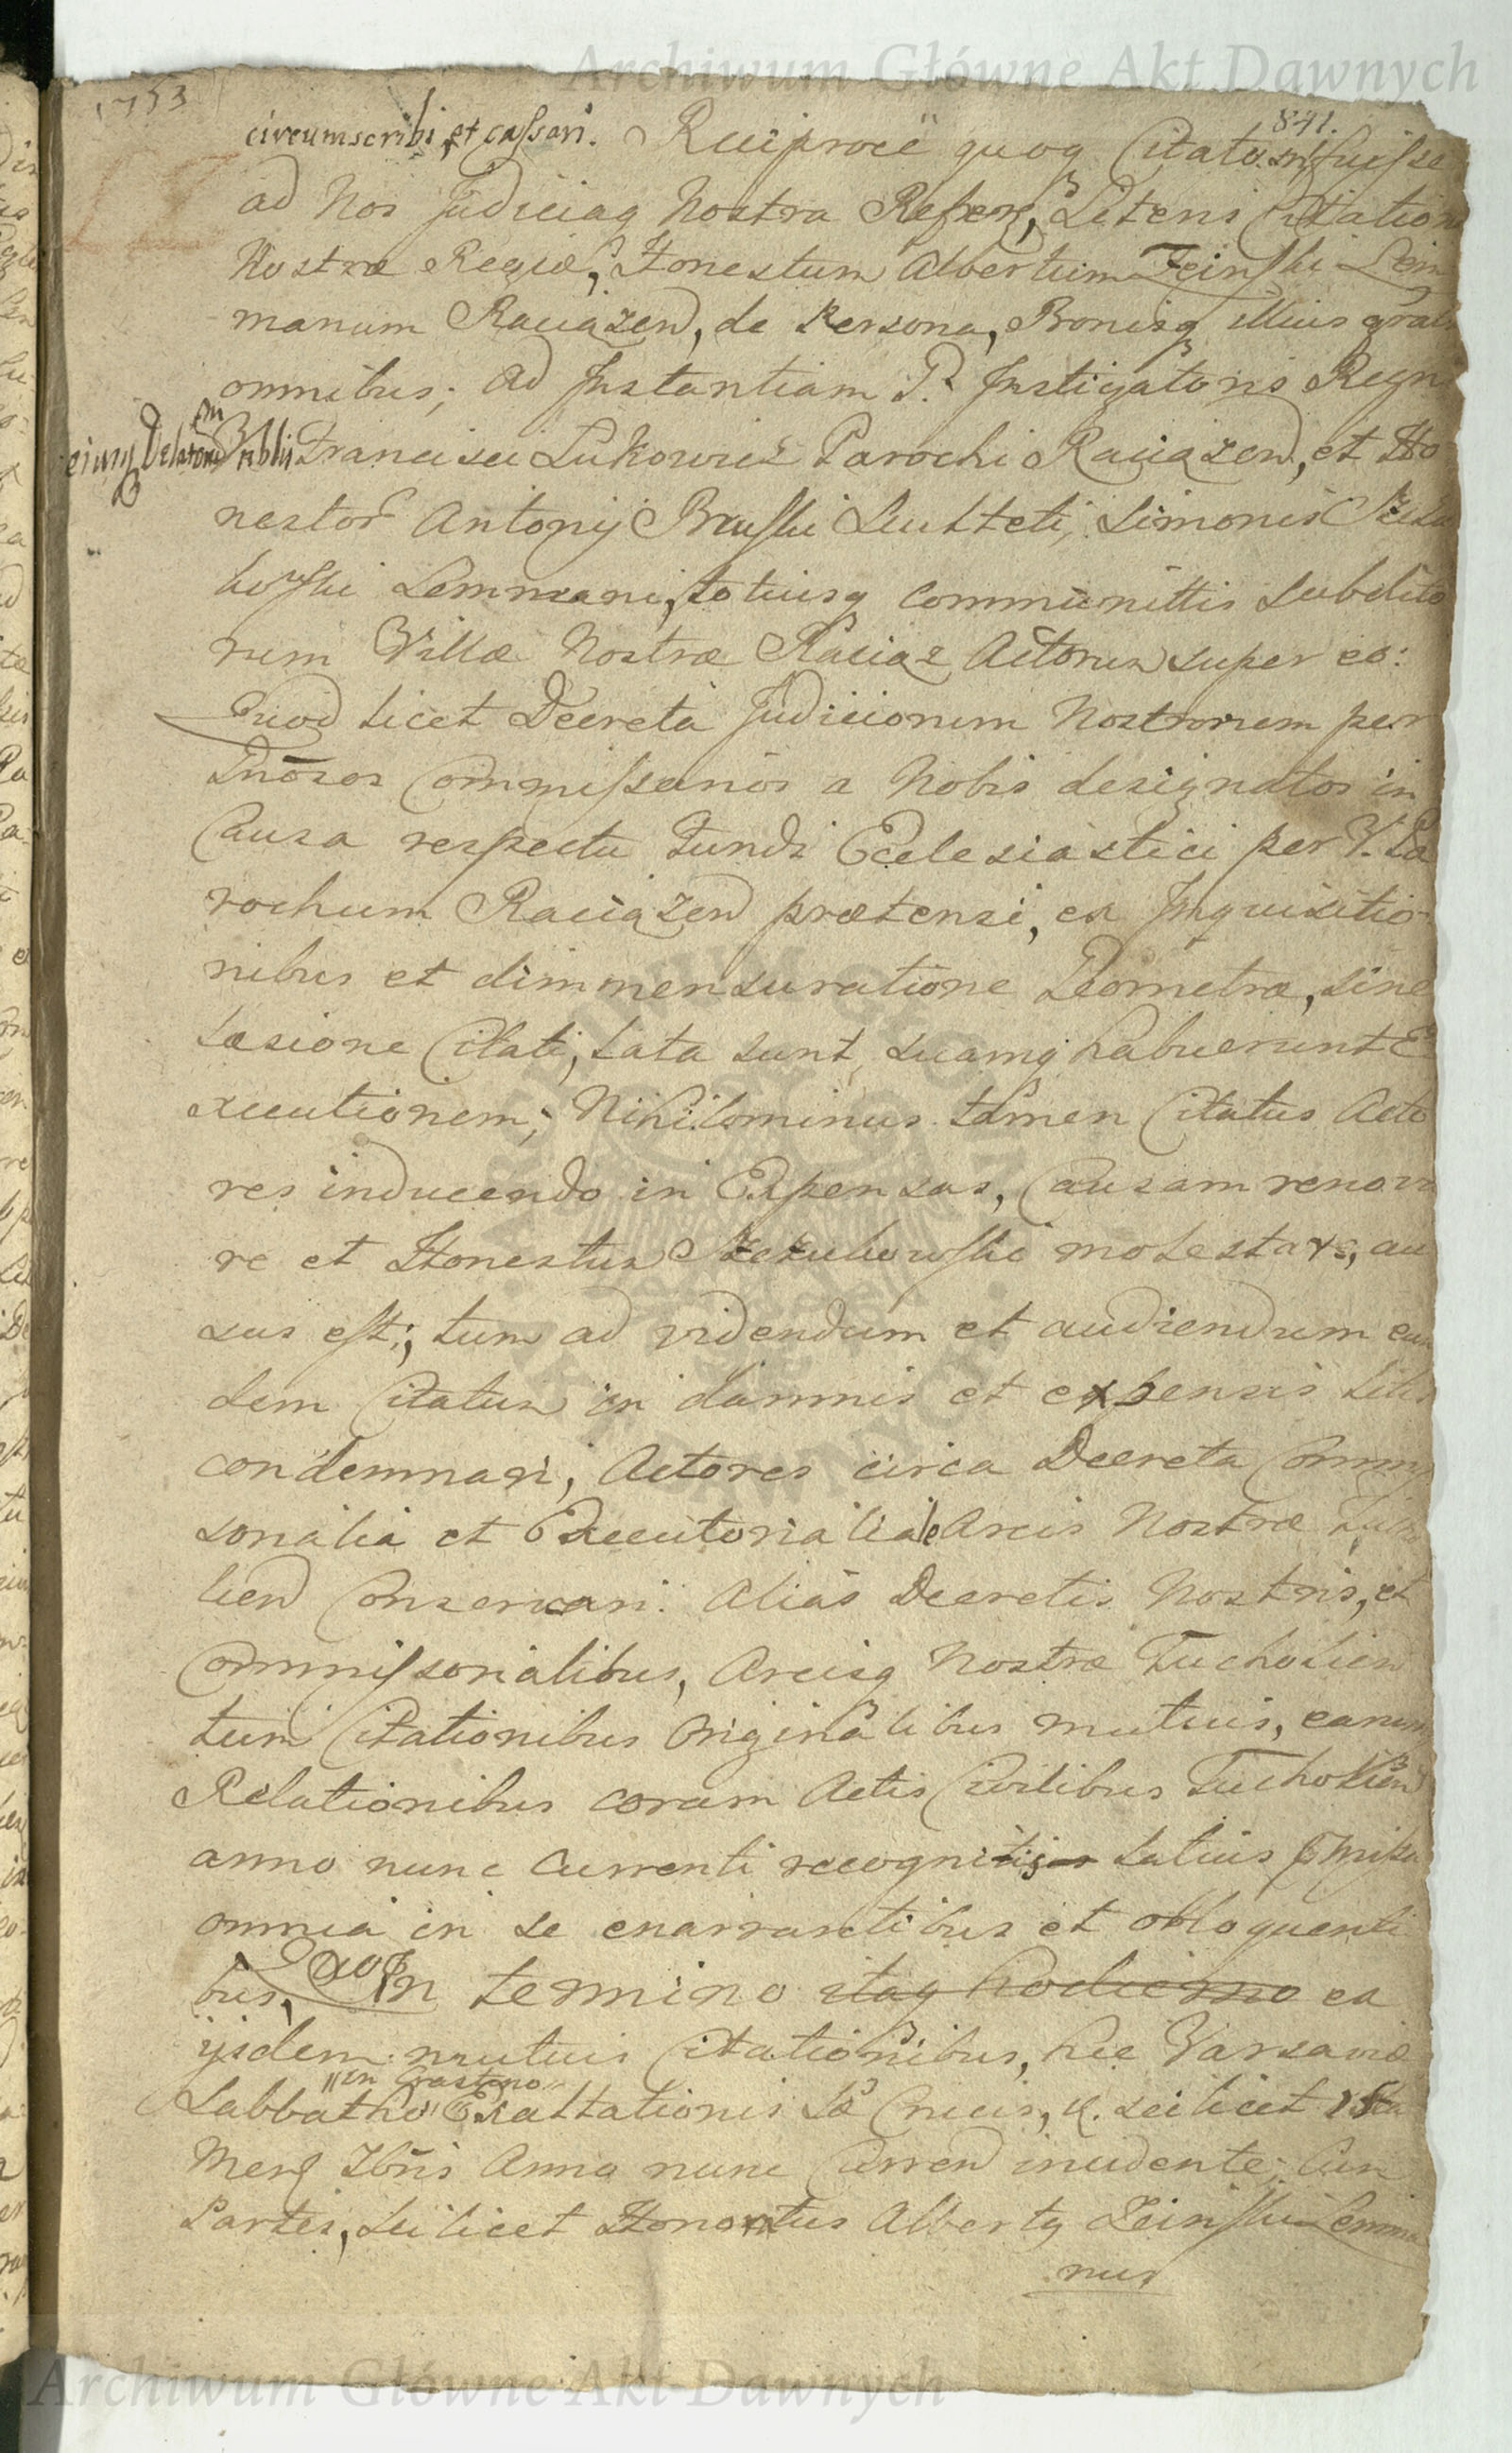 Archiwum Główne Akt Dawnych
1753
841.
circumscribi et cassari. Reciproce quoq Citatum fuisse
ad Nos Judiciaq Nostra Litteris Citation
Nostræ Regiæ, Honestum Albertum Zeinski Lem
manum Raciązen, de Persona, Bonisq illius
omnibus; ad Instantiam Instigatoris Regn
ejusq Delatorum Francisci Lukowicz Parochi Raciązen, et Ho
nestor Antonij Bruski Sculteti, Simonis
Lemmani, totiusq Communittis Subdito
rum Villæ Nostræ Raciąz Actorum super eo:
Quod licet Decreta Judiciorum Nostrorum per
Commissarios a Nobis designatos in
Causa respectu Fundi Ecclesiastici per V. Pa
rochum Raciązen prætensi, ex Inquisitio
nibus et dimmensuratione Geometræ, sine
læsione Citati, lata sunt, suamq habuerunt E
xecutionem; Nihilominus tamen Citatus Acto
res inducendo in Expensas, Causam renova
re et Honestum molestare, au
sus est; tum ad videndum et audiendum eun
dem Citatum in damnis et expensis litis
condemnari, Actores circa Decreta Commis
sorialia et Executorialia Arcis Nostræ Tucho
lien Conservari. Alias Decretis Nostris, et
Commissorialibus, Arcisq Nostræ Tucholien
tum Citationibus Originalibus mutuis, earum
Relationibus coram Actis Civilibus Tucholien
anno nunc Currenti recognitis latius
omnia in se enarrantibus et obloquenti
bus, Quo In termino itaq hodierno ex
ijsdem mutuis Citationibus, hic Varsaviæ
in Crastino
Sabbatho Exaltationis Sæ Crucis, scilicet 15ta
Mens 7bris Anno nunc Curren incidente; Cum
Partes, scilicet Honestus Albertq Zeinski Lemma
nus
Archiwum Główne Akt Dawnych